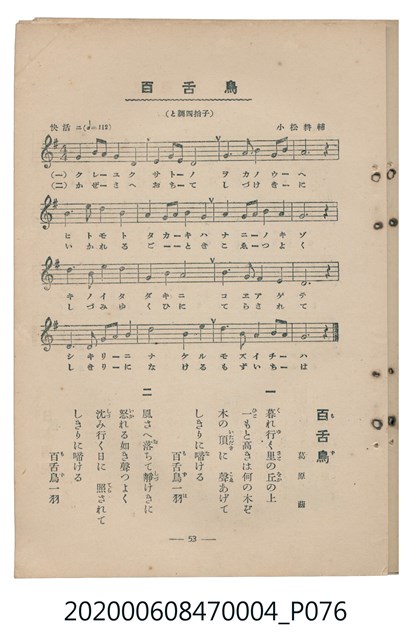 百舌鳥
(と調四拍子)
快活ニ(♩=112) 小松耕輔
(一)クレーユク サトーノ ヲカノウーヘ
(二)かぜーさへ おちーて しづけきーに
ヒトモト タカーキハ ナニーノキゾ
いかれる ごーーとき こゑーつよく
キノイタ ダキニ コヱアゲテ
しづみゆ くひに てらされて
シキリーニ ナケルモズイチーハ
しきりーに なけるもずいちーは
百舌鳥
葛原𦱳
一
暮れ行く里の丘の上
一もと高きは何の木ぞ
木の頂に聲あげて
しきりに啼ける
百舌鳥一羽
二
風さへ落ちて靜けきに
怒れる如き聲つよく
沈み行く日に照されて
しきりに啼ける
百舌鳥一羽
— 53 —
202000608470004_P076